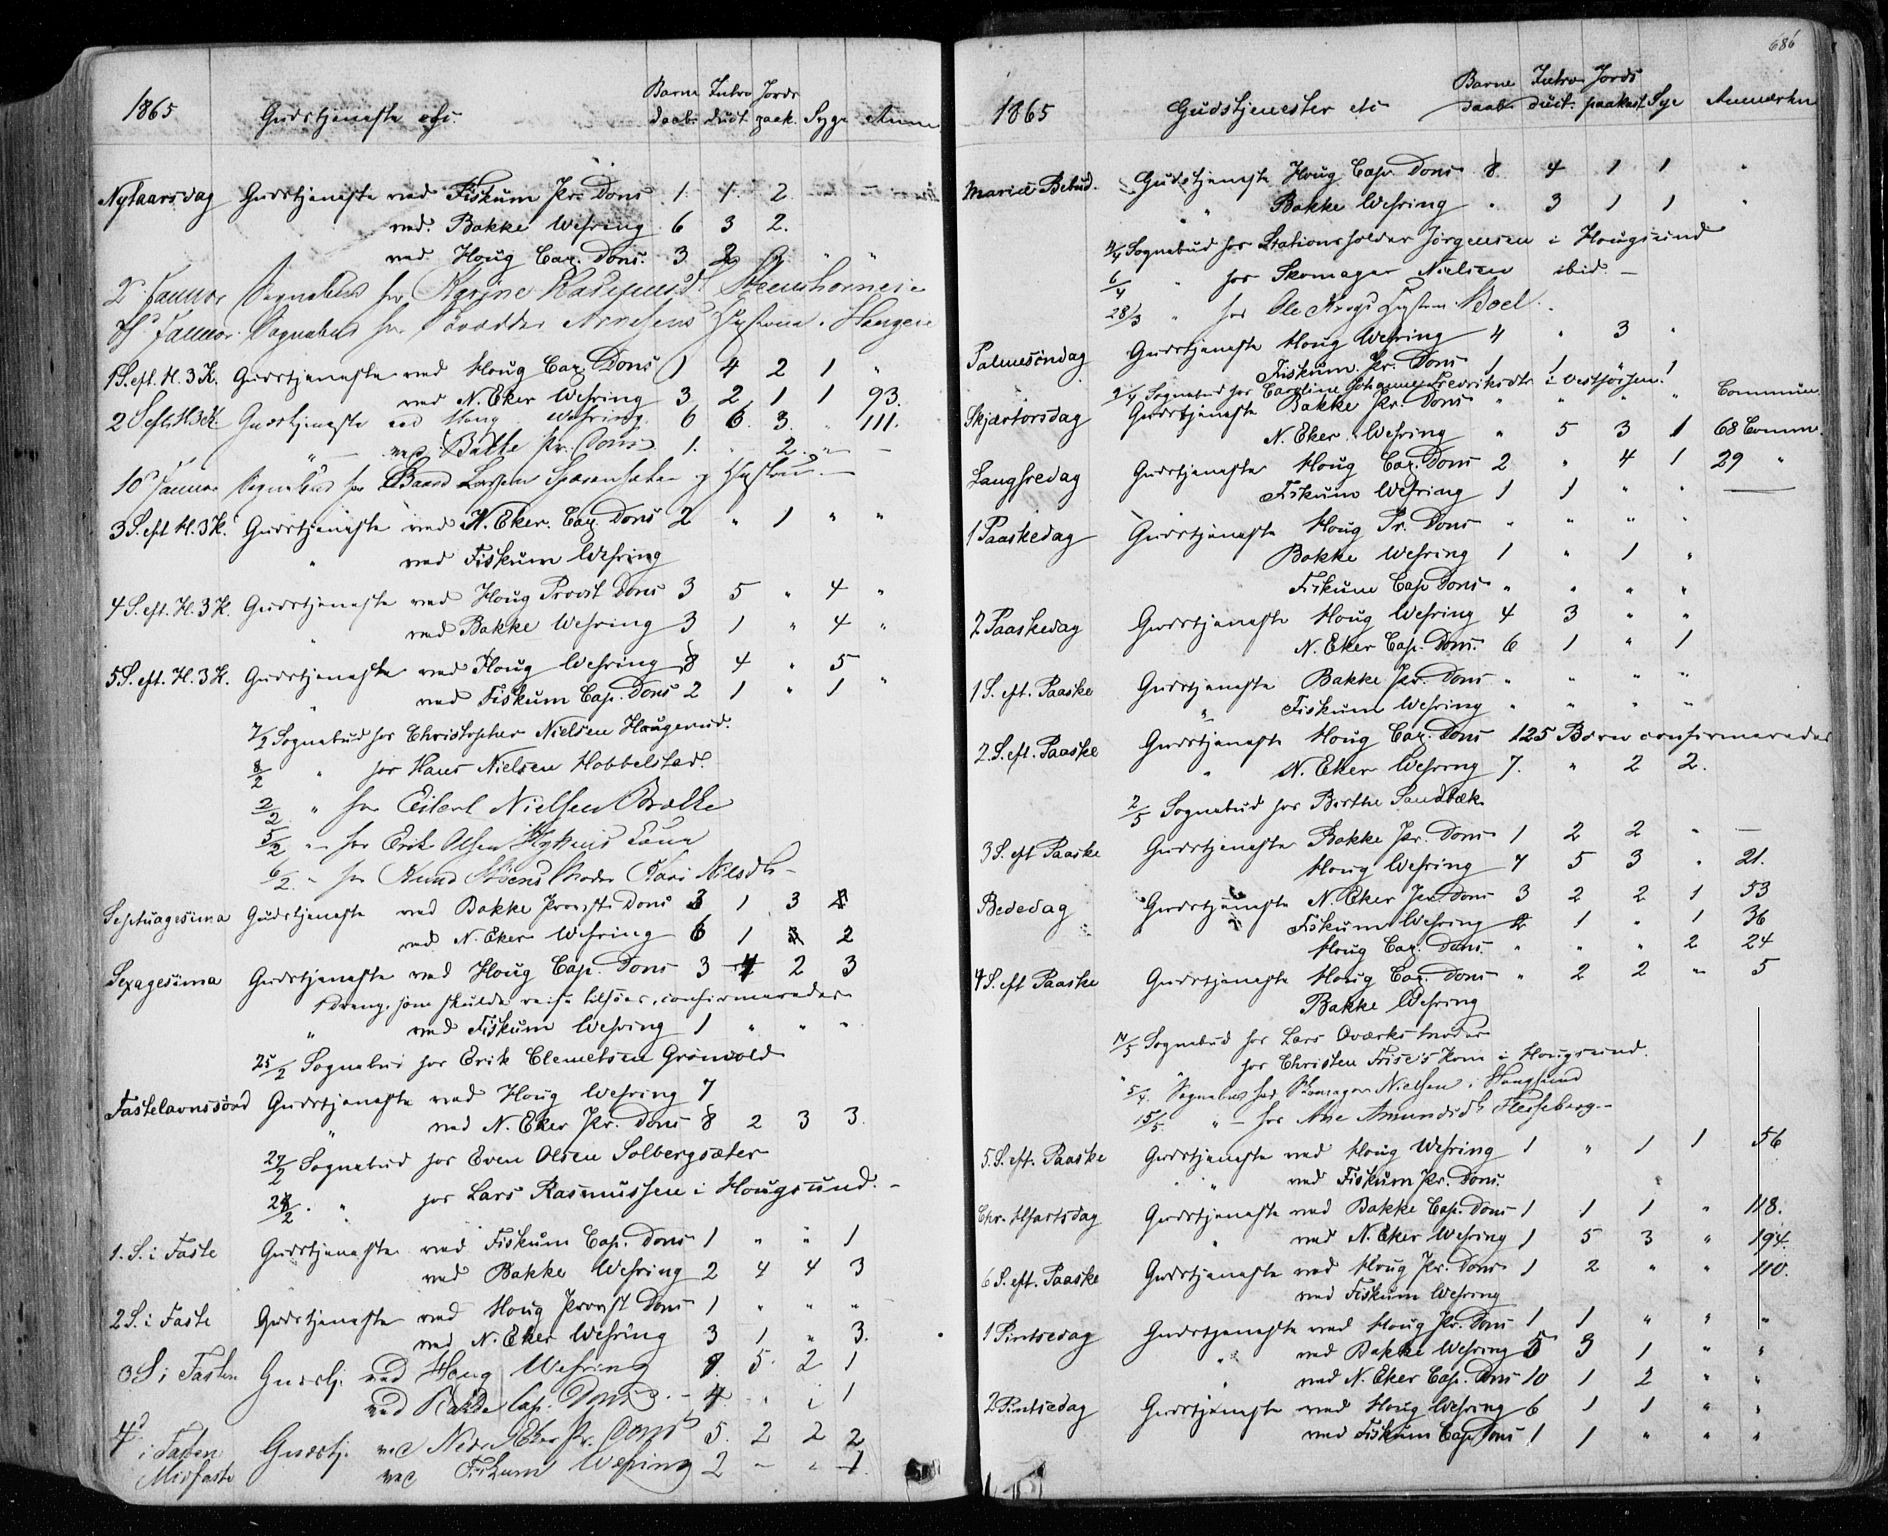 1865 Gudstjeneste ofs. Barne daab. Intro duct Jords paak. Syge Anm
Nytaarsdag Gudstjeneste ved Fiskum Pr. Dons 1. 1. 2. – –
ved Bakke Wefring 6 3 2.
ved Houg Cap. Dons. 3 2 " "
2den Januar Sognebud for Karine
Januar Sognebud for Arnesens Hustru i Haugen
1 S. eft. H. 3 K. Gudstjeneste ved Houg Cap. Dons 1 4 2 1 "
ved N. Eker Wefring 3 2 1 1 93.
2 S. eft. H 3 K Gudstjeneste ved Houg Wefring 6 6. 3. " 111.
" — ved Bakke Pr. Dons 1. " 2. " –
10de Januar Sognebud for Baard Larsen og Hustru. —
3 S. eft H. 3 K. Gudstjeneste ved N. Eker. Cap. Dons 2 " 1 " "
" ved Fiskum Wefring
4 S. eft. H. 3 K. Gudstjeneste ved Houg Provst Dons 3 5 " 4 "
" ved Bakke Wefring 3 1 " 4 "
5 S. eft. H. 3 K. Gudstjeneste ved Houg Wefring 8 4 " 5
" ved Fiskum Cap. Dons 2 1 " 1 "
7/2 Sognebud for Christopher Nielsen Haugerud.
8/2 " for Hans Nielsen Hobbelstad.
2/2 " for Eilert Nielsen Bralke
5/2 " – for Erik Olsen
6/2. – for Knud Moder Kari Nilsdtr –
Septuagesima Gudstjeneste ved Bakke Provst Dons 3 1 3
ved N. Eker Wefring 6 1 2
Sexagesima Gudstjeneste ved Houg Cap. Dons 3 4 2 3
1 Dreng, som skulde reise tilsøes, confirmeredes
" ved Fiskum Wefring 1 " " "
25/2 Sognebud for Erik Clemetsen Grønvold
Fastelavnssønd Gudstjeneste ved Houg Wefring 7
" ved N. Eker Pr. Dons 8 2 3 3.
27/2 Sognebud for Even Olsen Solbergsæter
28/2. " for Lars Rasmussen i Hougsund. –
1. S. i Faste Gudstjeneste ved Fiskum Cap. Dons 1 " " 1
ved Bakke Wefring 2 4 4 3
2 S. i Faste Gudstjeneste ved Houg Provst Dons 1 " " "
ved N. Eker Wefring 3 1 " 3.
3 S i Fasten Gudstj. ved Houg Wefring 5. 2 1
ved Bakke Cap. Dons. – 4 " 1
4de i Fasten Gudstj. ved Nedre Eker Pr. Dons 5. 2 2 2
Midfaste ved Fiskum Wefring 2 – " 1.
686
1865 Gudstjenester etc Barne daab. Intro duct. Jords paakast Syge Anmærkn
Mariæ Bebud. Gudstjeneste Houg Cap. Dons 8 4 1 1 "
" " Bakke Wefring " 3 1 1 "
4/4 Sognebud for Stationsholder Jørgensen i Hougsund
6/4 " for Skomager Nielsen ibid –
28/3 " for Ole
Palmesøndag Gudstjeneste Houg Wefring 4 " 3 "
Fiskum. Pr. Dons 1 1 " 1
2/4 Sognebud for Caroline Johanne Fredriksdtr i Vestfossen.
Skjærtorsdag Gudstjeneste Bakke Pr. Dons " " " " Commun.
N. Eker Wefring " 5 3 1 68 Comm.
Langfredag Gudstjeneste Houg Cap. Dons 2 " 4 1 29 "
Fiskum Wefring 1 1 " " —
1 Paaskedag Gudstjeneste Houg Pr. Dons " " " "
Bakke Wefring 1 " 1 "
Fiskum Cap Dons " " " "
2 Paaskedag Gudstjeneste Houg Wefring 4 3 " "
N. Eker Cap. Dons. 6 1 " 1
1 S. eft. Paaske Gudstjeneste Bakke Pr. Dons " " " "
" Fiskum Wefring " " " "
2. S. eft. Paaske Gudstjeneste Houg Cap. Dons 125 Børn confirmeredes
" N. Eker Wefring 7. " 2 2.
2/5 Sognebud for Berthe Sandbæk
3 S. eft Paaske Gudstjeneste Bakke Pr. Dons 1 2 2 " —
Houg Wefring 4 5 3 " 21.
Bededag Gudstjeneste N. Eker Pr. Dons 3 2 2 1 53
" Fiskum Wefring 1 " 1 36
Houg Cap. Dons. " " " 2 24
4 S. eft Paaske Gudstjeneste Houg Cap. Dons " 2 2 " 5
Bakke Wefring
Sognebud for Lars Moder
" for Christen Friis's Kone i Hougsund.
5/4. Sognebud for Skomager Nielsen i Hougsund
15/5 " – for Ane Amundsdtr Flesseberg –
5. S. eft. Paaske Gudstjeneste ved Houg Wefring 1 " 1 1 56
" ved Fiskum Pr. Dons.
Chr. Hfartsdag Gudstjeneste ved Bakke Cap. Dons 1 1 1 " 118.
" ved N. Eker Wefring 1 5 3 " 194.
6 S. eft. Paaske Gudstjeneste ved Houg Pr. Dons 1 2 " " 110.
ved Fiskum Wefring
1 Pintsedag Gudstjeneste ved Houg Pr. Dons 1 1 " " "
" ved Bakke Wefring 5 3 1 " "
ved N. Eker Cap. Dons 10 1 2 " "
2 Pintsedag Gudstjeneste ved Houg Wefring 6 1 1 " "
ved Fiskum Cap Dons 1 1 " " "